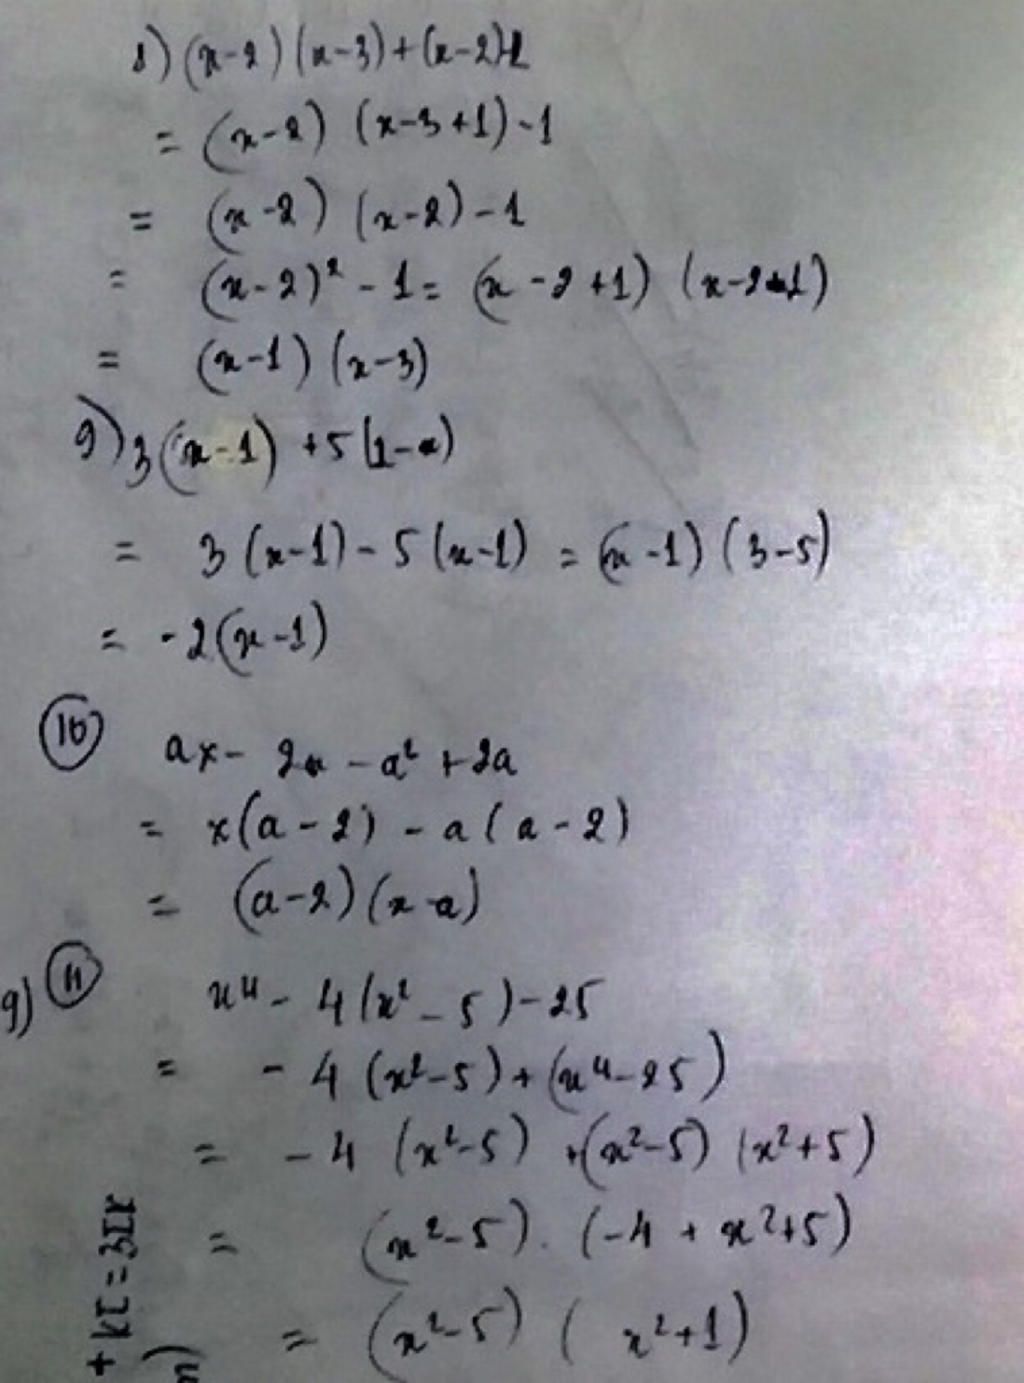 8) (x-2) (x-3) + (x-2)-1
= (x-2) (x-3+1)-1
= (x-2) (x-2) - 1
= (x-2)² - 1 = (x-2+1) (x-2-1)
= (x-1) (x-3)
9) 3(x-1) +5(1-x)
= 3(x-1)-5(x-1) = (x-1)(3-5)
= -2(x-1)
10 ax - 2x - a² + 2a
= x(a-2) - a(a-2)
= (a-2)(x-a)
g) 11 x⁴ - 4(x²-5)-25
= -4(x²-5)+(x⁴-25)
= -4(x²-5) +(x²-5)(x²+5)
= (x²-5). (-4 + x²+5)
= (x²-5) ( x²+1)